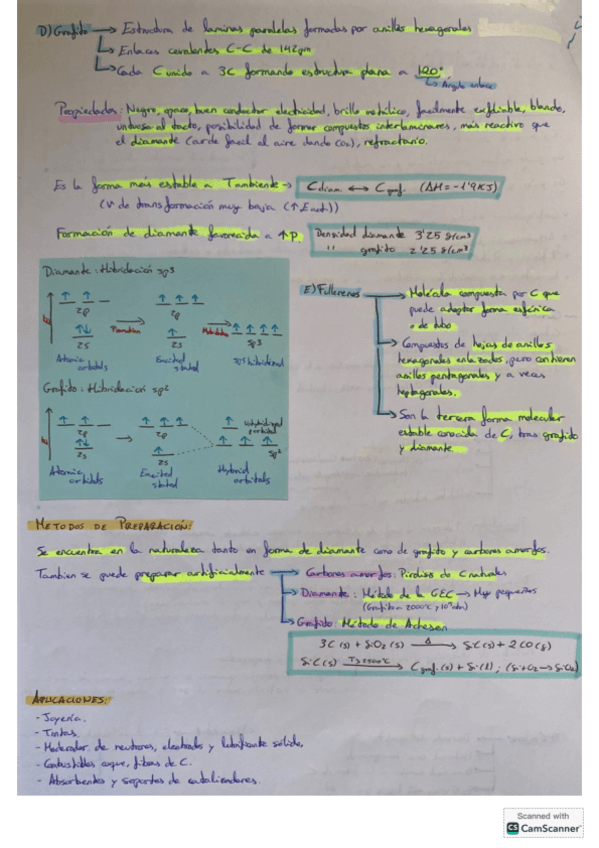 D) Grafito → Estructura de laminas paralelas formadas por anillos hexagonales
↳ Enlaces covalentes C-C de 142pm
↳ Cada C unido a 3C formando estructura plana a 120°
↳ Ángulo enlace
Propiedades: Negro, opaco, buen conductor electricidad, brillo metálico, facilmente exfoliable, blando,
untuoso al tacto, posibilidad de formar compuestos interlaminares, más reactivo que
el diamante (arde facil al aire dando CO₂), refractario.
Es la forma más estable a Tambiente → C diam. ↔ C graf. (ΔH = -1'9 KJ)
(V de transformación muy baja (↑Eact.))
Formación de diamante favorecida a ↑P
Densidad diamante 3'25 g/cm³
" grafito 2'25 g/cm³
Diamante: Hibridación sp3
2p 2p
Promotion sp3
2s 2s
Atomic orbitals Excited state sp3 hibridized
Grafito: Hibridación sp2
2p 2p Unhybridized orbital
2s 2s sp2
Atomic orbitals Excited state Hybrid orbitals
E) Fullerenos → Molécula compuesta por C que
puede adoptar forma esférica
o de tubo
→ Compuestos de hojas de anillos
hexagonales enlazados, pero contienen
anillos pentagonales y a veces
heptagonales.
→ Son la tercera forma molecular
estable conocida de C, tras grafito
y diamante.
METODOS DE PREPARACIÓN:
Se encuentra en la naturaleza tanto en forma de diamante como de grafito y carbones amorfos.
Tambien se puede preparar artificialmente → Carbones amorfos: Pirolisis de C naturales
→ Diamante: Método de la GEC → Muy pequeños
(Grafito a 2000°C y 10⁵ atm)
→ Grafito: Método de Acheson
3C (s) + SiO₂ (s) Δ→ SiC (s) + 2CO (g)
SiC (s) T>2500°C→ C graf. (s) + Si (l) ; (Si + O₂ → SiO₂)
APLICACIONES:
- Joyería.
- Tintas.
- Moderador de neutrones, electrodos y lubrificante sólido.
- Combustibles coque, fibras de C.
- Absorbentes y soportes de catalizadores.
Scanned with
CS CamScanner